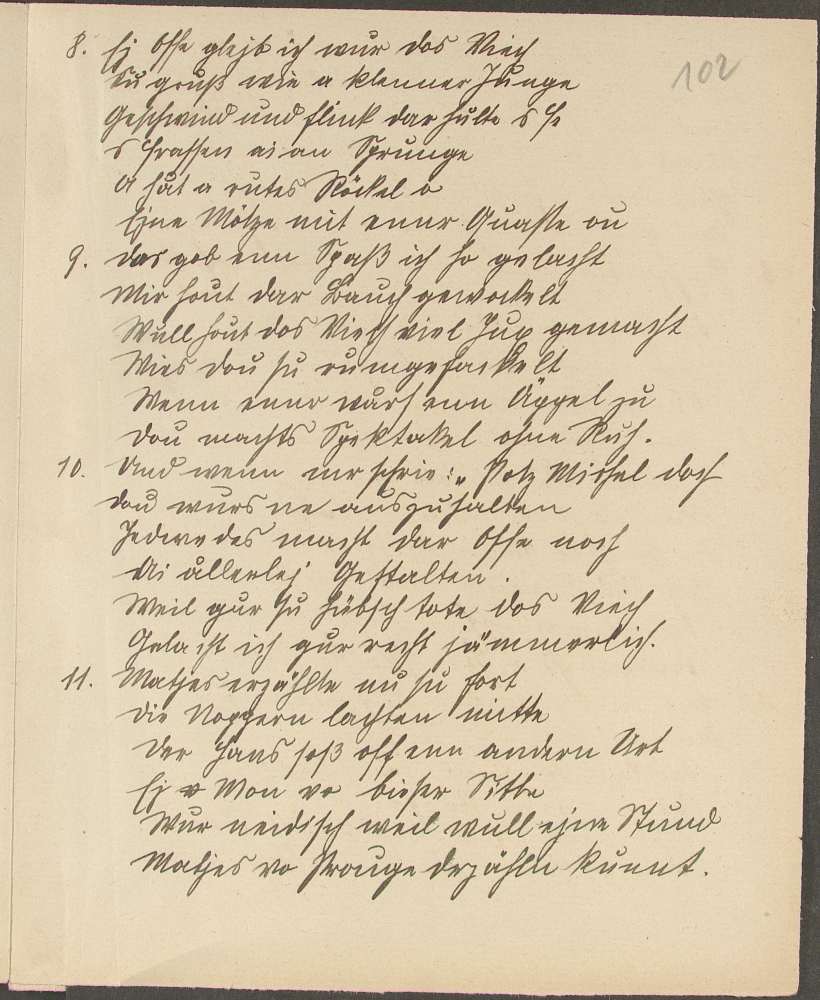 102
8. Ej Offe glejb ich wur dos Viech
Su gruß wie a klenner Junge
Geschwind und flink dar hulte s
s frassen ai an Sprunge
A håt a rutes Röckel o
Ejne Mötze mit enner Quaste ou
9. Das gob enn Spaß ich ho gelacht
Mir hout dar Bauch gewockelt
Wull hout dos Viech viel Jux gemacht
Wies dou su rumgefackelt
Wenn enner wurf enn Äppel zu
Dou machts Spektakel ohne Ruh.
10. Und wenn mr schrie: „Potz Michel doch
Dou wurs ne auszuhalten
Jedwedes macht dar Offe noch
Ai ållerlej Gestalten.
Weil gur su hübsch tote dos Viech
Gelacht ich gur recht jämmerlich.
11. Matjes erzählte nu su fort
Die Noppern lachten mitte
Der Hans soß off enn andern Urt
Ej Mon vo bieser Sitte
Wur neidisch weil wull ejne Stund
Matjes vo Prouge drzähln kunnt.